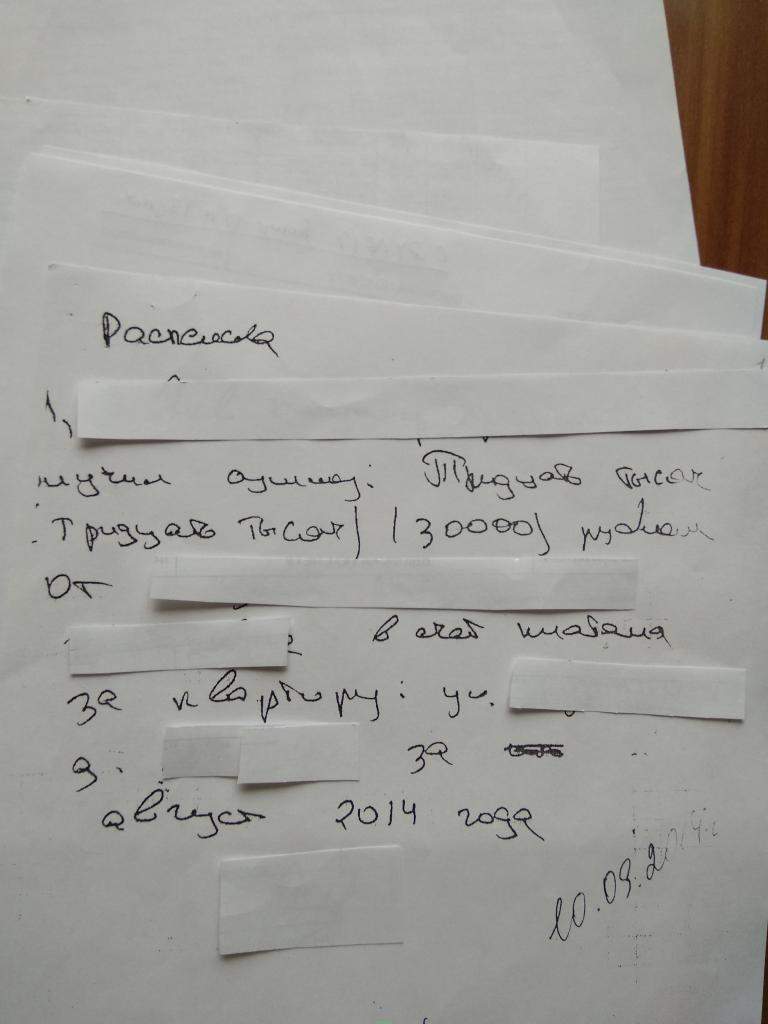 Расписка
Я,
получил сумму: Тридцать тысяч
Тридцать тысяч) (30000) рублей
от
в счет платежа
за квартиру: ул.
д. за
август 2014 года
10.09.2014г.